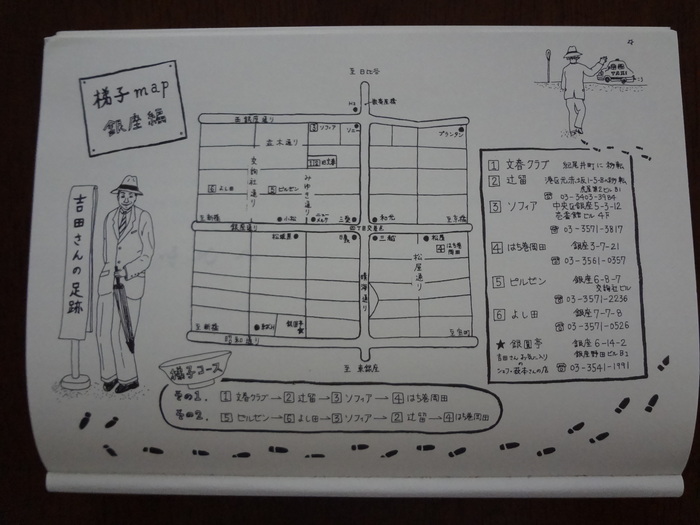 梯子map
銀座編
吉田さんの足跡
至日比谷
数寄屋橋
西銀座通り
3 ソフィア
ソニー
プランタン
並木通り
交詢社通り
みゆき通り
6 よし田
5 ピルゼン
至新橋
小松
三愛
和光
至京橋
銀座通り
四丁目交差点
松坂屋
三越
松屋
4 はち巻岡田
晴海通り
松屋通り
至新橋
銀圓亭
昭和通り
至 東銀座
TAXI
1 文春クラブ 紀尾井町に移転
2 辻留 港区元赤坂1-5-8へ移転
虎屋第2ビルB1
☎ 03-3403-3984
3 ソフィア 中央区銀座5-3-12
壱番館ビル4F
☎ 03-3571-3817
4 はち巻岡田 銀座3-7-21
☎ 03-3561-0357
5 ピルゼン 銀座6-8-7
交詢社ビル
☎ 03-3571-2236
6 よし田 銀座7-7-8
☎ 03-3571-0526
★ 銀圓亭 銀座6-14-2
吉田さんお気に入りの 銀座野田ビルB2
シェフ・萩本さんの店 ☎ 03-3541-1991
梯子コース
その1. 1 文春クラブ→2 辻留→3 ソフィア→4 はち巻岡田
その2. 5 ピルゼン→6 よし田→3 ソフィア→2 辻留→4 はち巻岡田